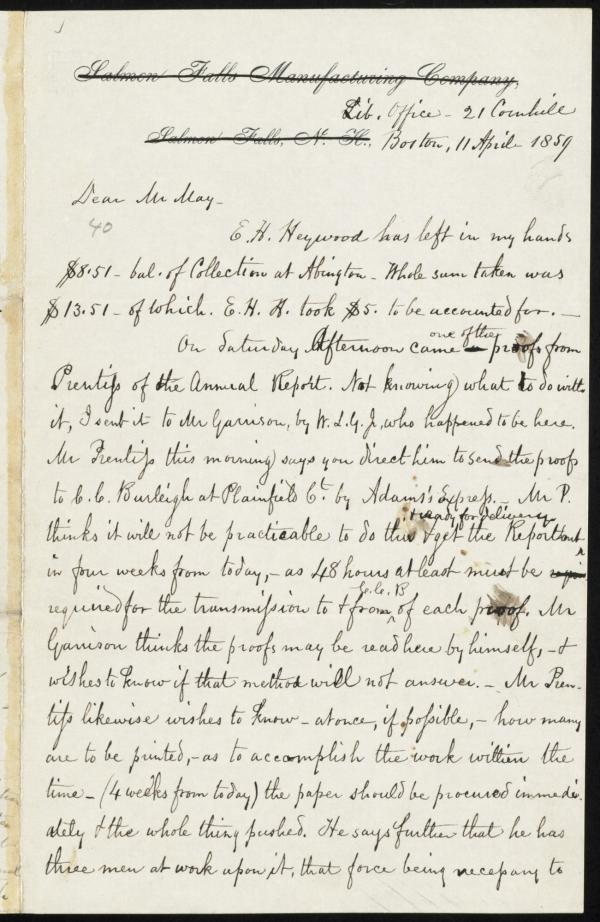 Salmon Falls Manufacturing Company,
Lib. Office - 21 Cornhill
Salmon Falls, N. H., Boston, 11 April 1859
Dear Mr May -
40
E. H. Heywood has left in my hands
$8.51 - bal. of Collection at Abington - Whole sum taken was
$13.51 - of which. E. H. H. took $5. to be accounted for. -
On Saturday Afternoon came one of the proofs from
Prentiss of the Annual Report. Not knowing what to do with
it, I sent it to Mr Garrison, by W. L. G. Jr, who happened to be here.
Mr Prentiss this morning says you direct him to send the proofs
to C. C. Burleigh at Plainfield Ct. by Adams's Express. - Mr P.
& ready for delivery
thinks it will not be practicable to do this & get the Report out
in four weeks from today, - as 48 hours at least must be
C. C. B
required for the transmission to & from of each proof. Mr
Garrison thinks the proofs may be read here by himself, - &
wishes to know if that method will not answer. - Mr Pren-
tiss likewise wishes to know - at once, if possible, - how many
are to be printed, - as to accomplish the work within the
time - (4 weeks from today) the paper should be procured immedi-
ately & the whole thing pushed. He says further that he has
three men at work upon it, that force being necessary to